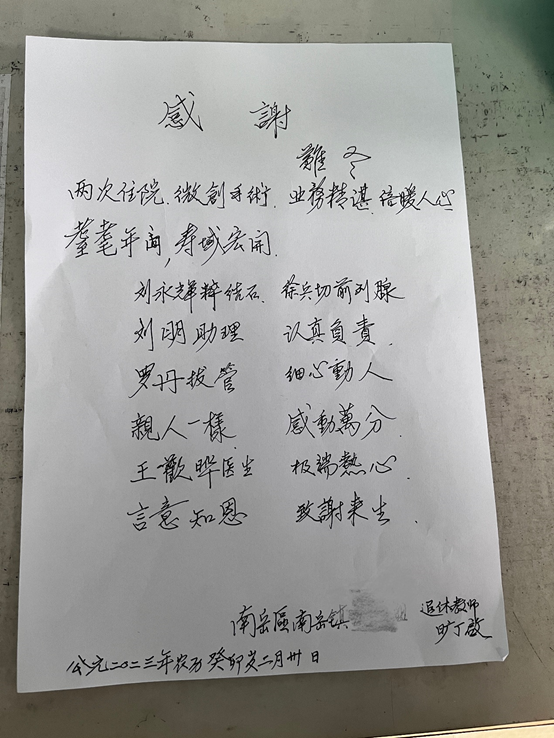 感 謝
難冬
两次住院，微創手術，业務精湛，倍暖人心
耄耋年间，寿域宏開．
刘永輝粹结石．徐兵切前列腺
刘明助理 认真負責．
罗丹拔管 细心動人
親人一樣 感動萬分．
王歡晔医生 极端熱心．
言意知恩 致謝来生．
南岳區南岳镇
退休教师
旷丁啟
公元二〇二三年农历癸卯岁二月卅日